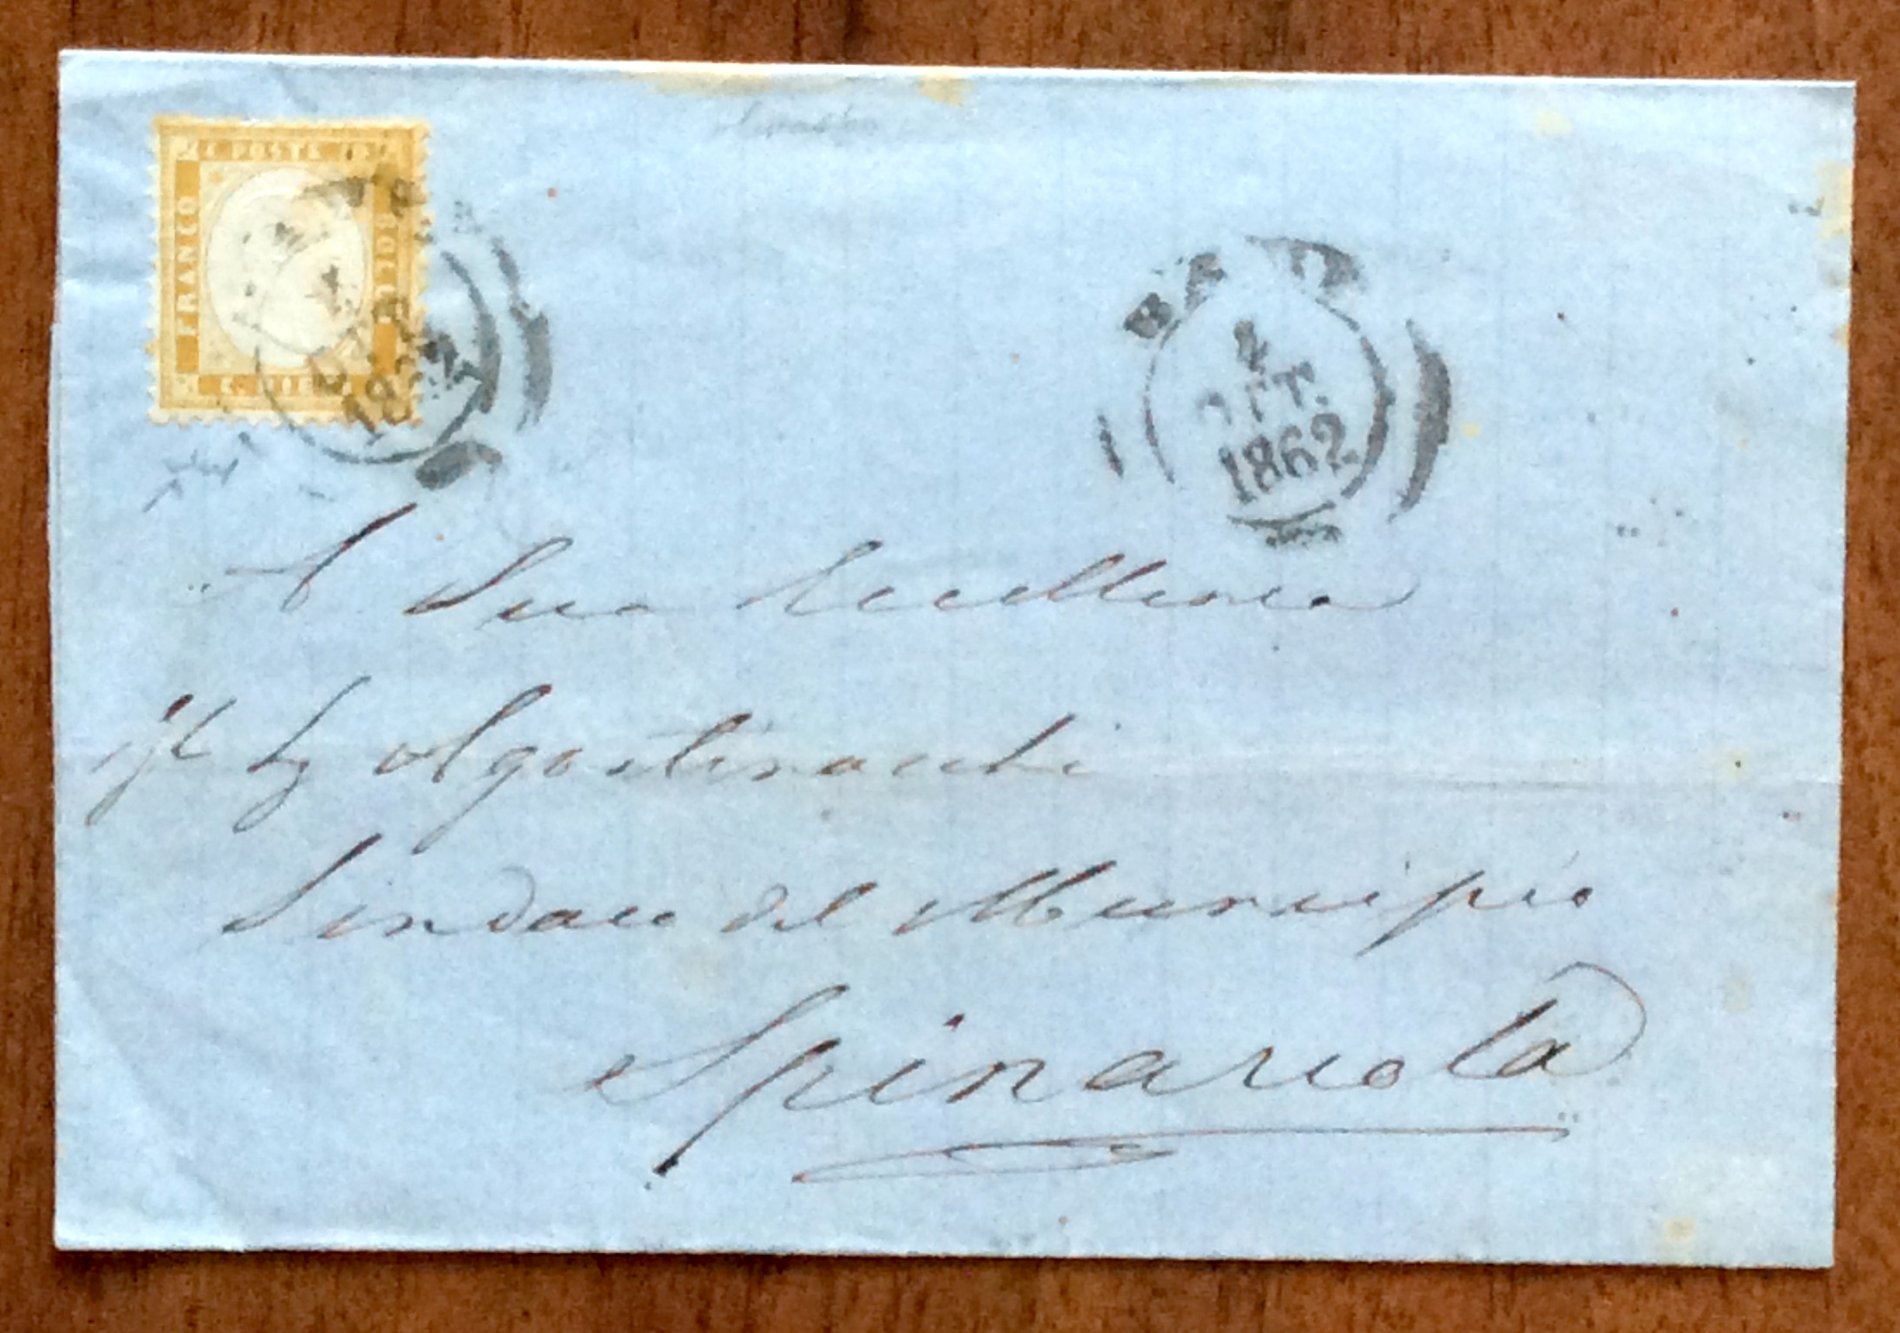 POSTE
FRANCO
BOLLO
C. DIECI
BARI
4
OTT.
1862
A Sua Eccellenza
Agostinacchi
Sindaco del Municipio
Spinazzola